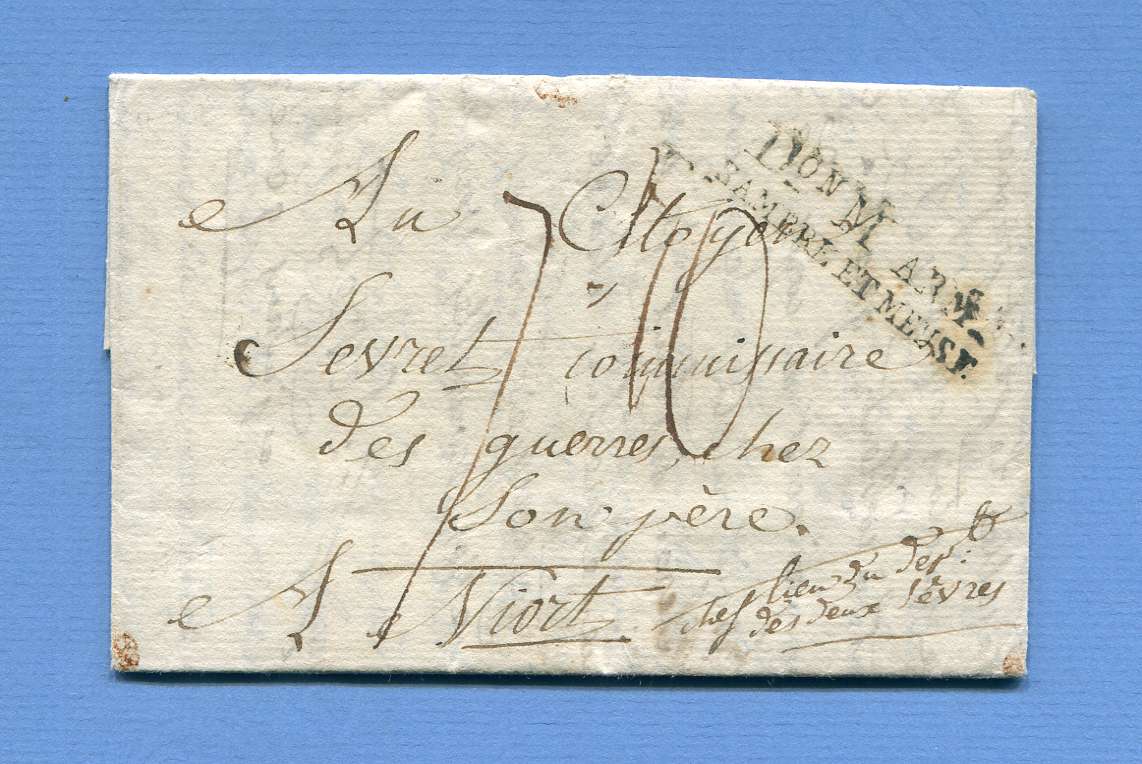 DION M
ARM.
SAMBRE ET MEUSE.
Au Citoyen
Sevret commissaire
des guerres, chez
Son père.
A Niort
chef lieu du dept.
des deux Sèvres